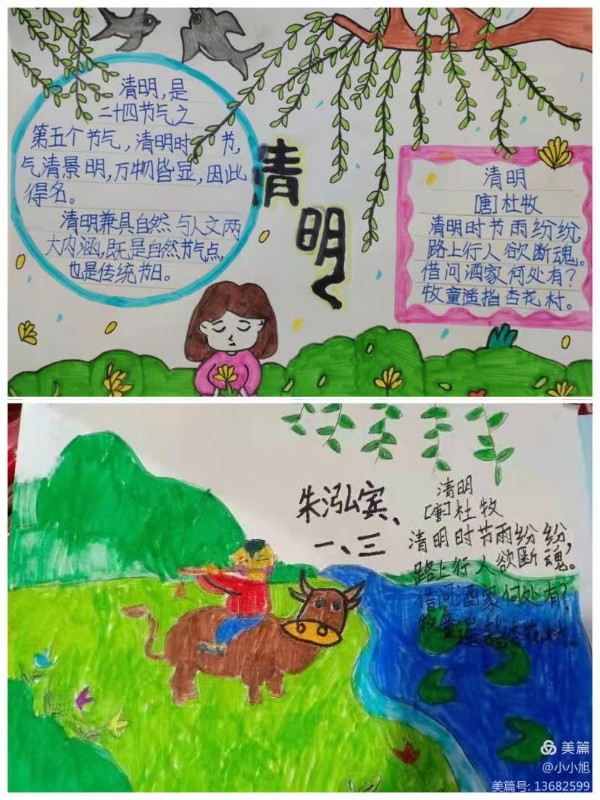 清明,是
二十四节气之
第五个节气,清明时一节,
气清景明,万物皆显,因此
得名。
清明兼具自然与人文两
大内涵,既是自然节气点,
也是传统节日。
清明
清明
[唐]杜牧
清明时节雨纷纷,
路上行人欲断魂。
借问酒家何处有?
牧童遥指杏花村。
朱泓宾、
一、三
清明
[唐]杜牧
清明时节雨纷纷,
路上行人欲断魂。
借问酒家何处有?
牧童遥指杏花村。
美篇
@小小旭
美篇号: 13682599